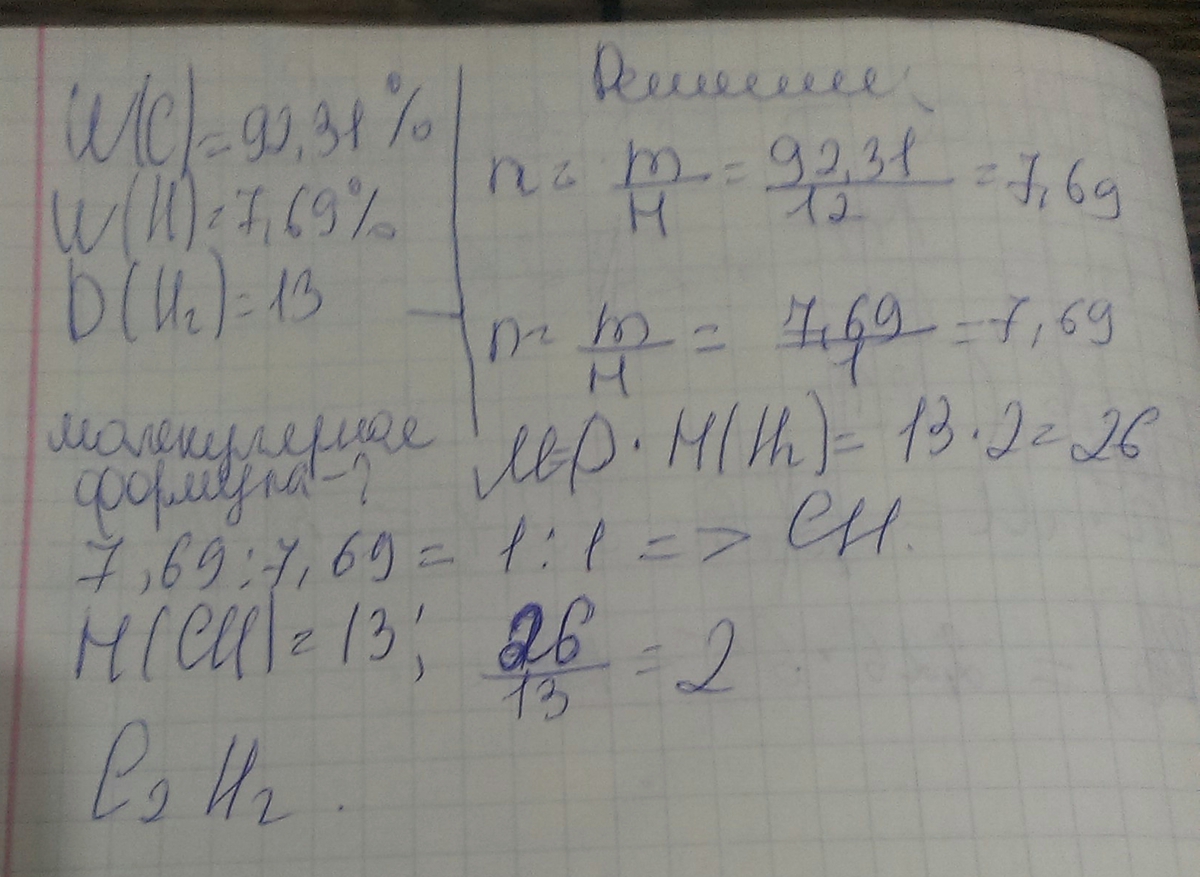 W(C)=92,31%
W(H)=7,69%
D(H₂)=13
молекулярная
формула-?
Решение:
n = m/M = 92,31/12 = 7,69
n = m/M = 7,69/1 = 7,69
M=D·M(H₂)=13·2=26
7,69:7,69=1:1 => CH.
M(CH)=13; 26/13 = 2
C₂H₂.